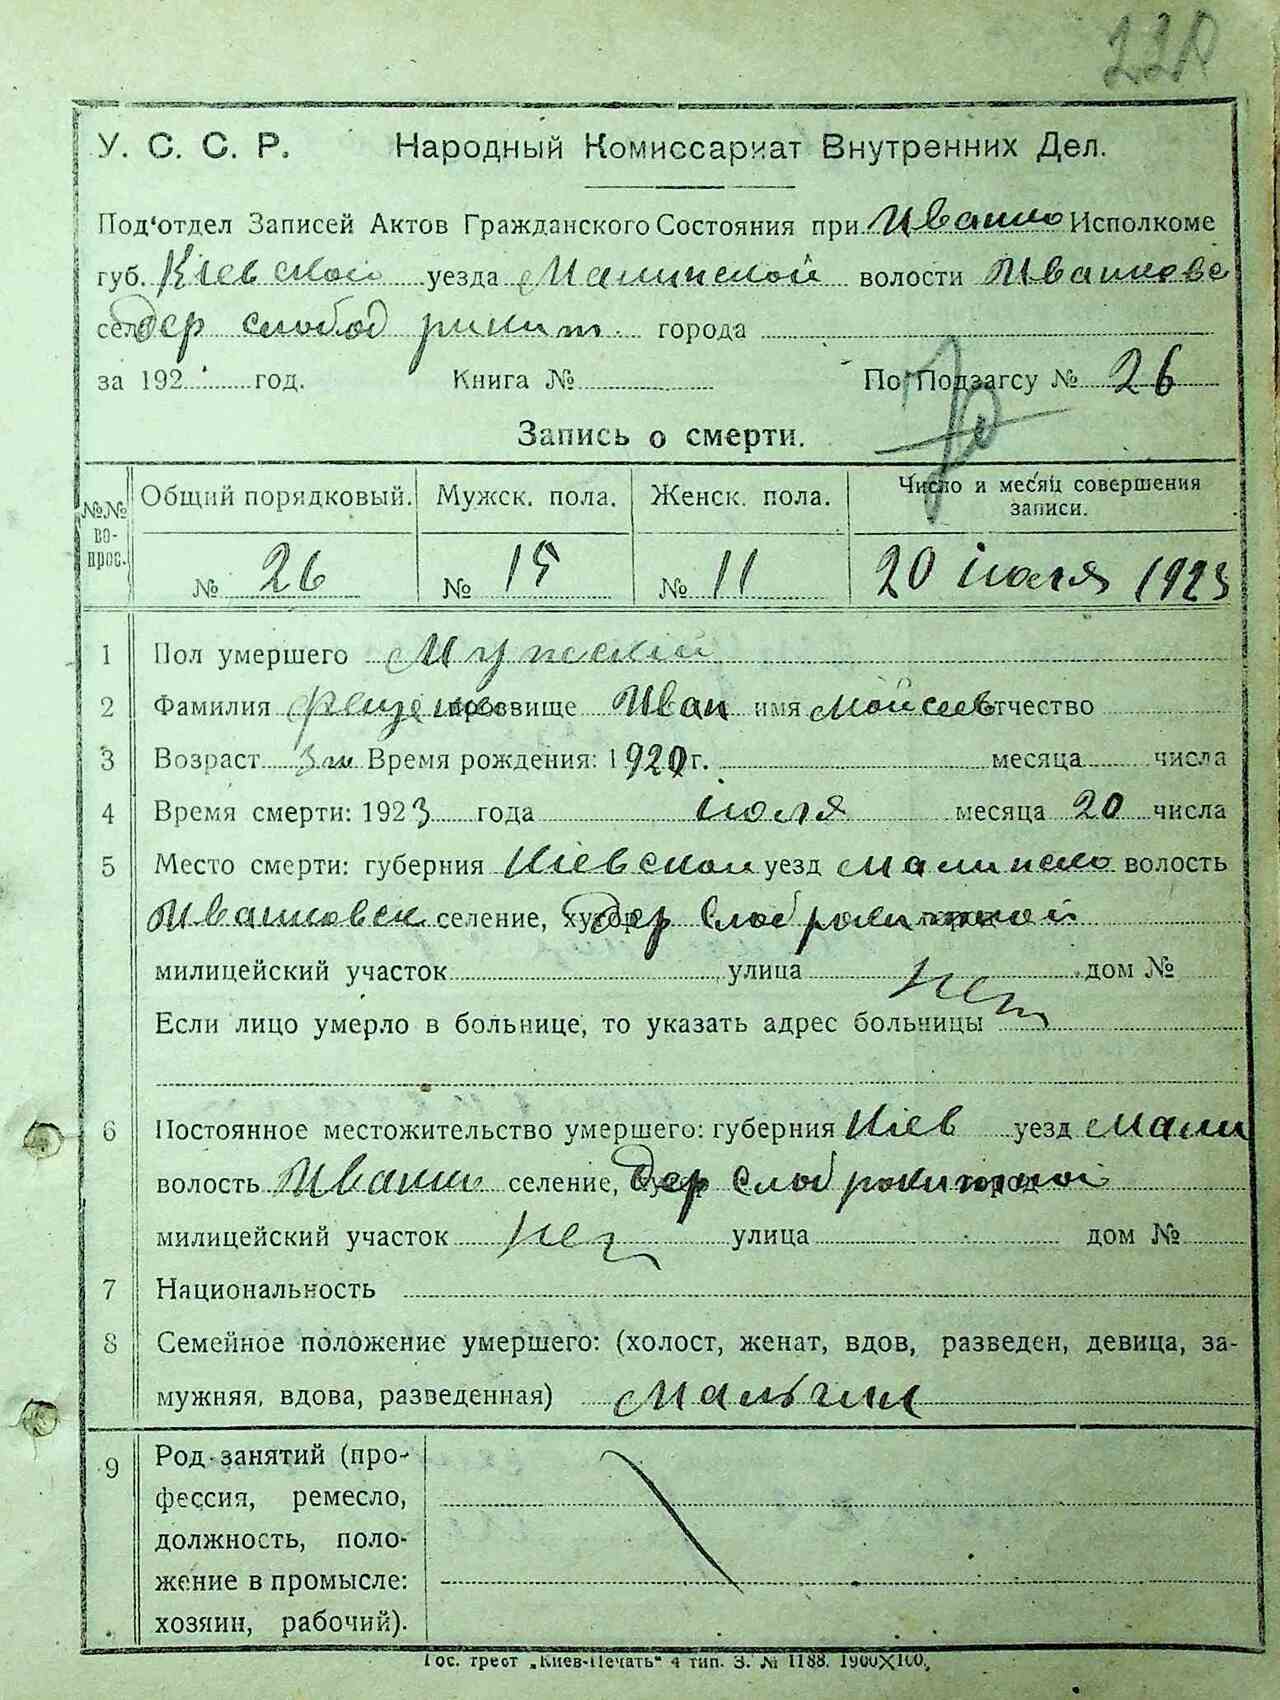 У. С. С. Р. Народный Комиссариат Внутренних Дел.
Под'отдел Записей Актов Гражданского Состояния при Ивашко Исполкоме
губ. Кіевской уезда Малинской волости Ивашковс
село дер слобод города
за 192 год. Книга № По Подзагсу № 26
Запись о смерти.
№№ вопрос. Общий порядковый. Мужск. пола. Женск. пола. Число и месяц совершения записи.
№ 26 № 15 № 11 20 июля 1923
1 Пол умершего Мужской
2 Фамилия прозвище Иван имя Мойсеев отчество
3 Возраст 3 Время рождения: 1920 г. месяца числа
4 Время смерти: 1923 года июля месяца 20 числа
5 Место смерти: губерния Кіевской уезд Малинско волость
Ивашковск селение, хутор дер Слоб рокитной город
милицейский участок улица дом №
Если лицо умерло в больнице, то указать адрес больницы нет
6 Постоянное местожительство умершего: губерния Кіев уезд Мали
волость Ивашк селение, хутор дер Слоб рокитной город
милицейский участок нет улица дом №
7 Национальность
8 Семейное положение умершего: (холост, женат, вдов, разведен, девица, за-
мужняя, вдова, разведенная) Мальчик
9 Род занятий (про-
фессия, ремесло,
должность, поло-
жение в промысле:
хозяин, рабочий).
Гос. трест „Киев-Печать“ 4 тип. З. № 1188. 1900X100.